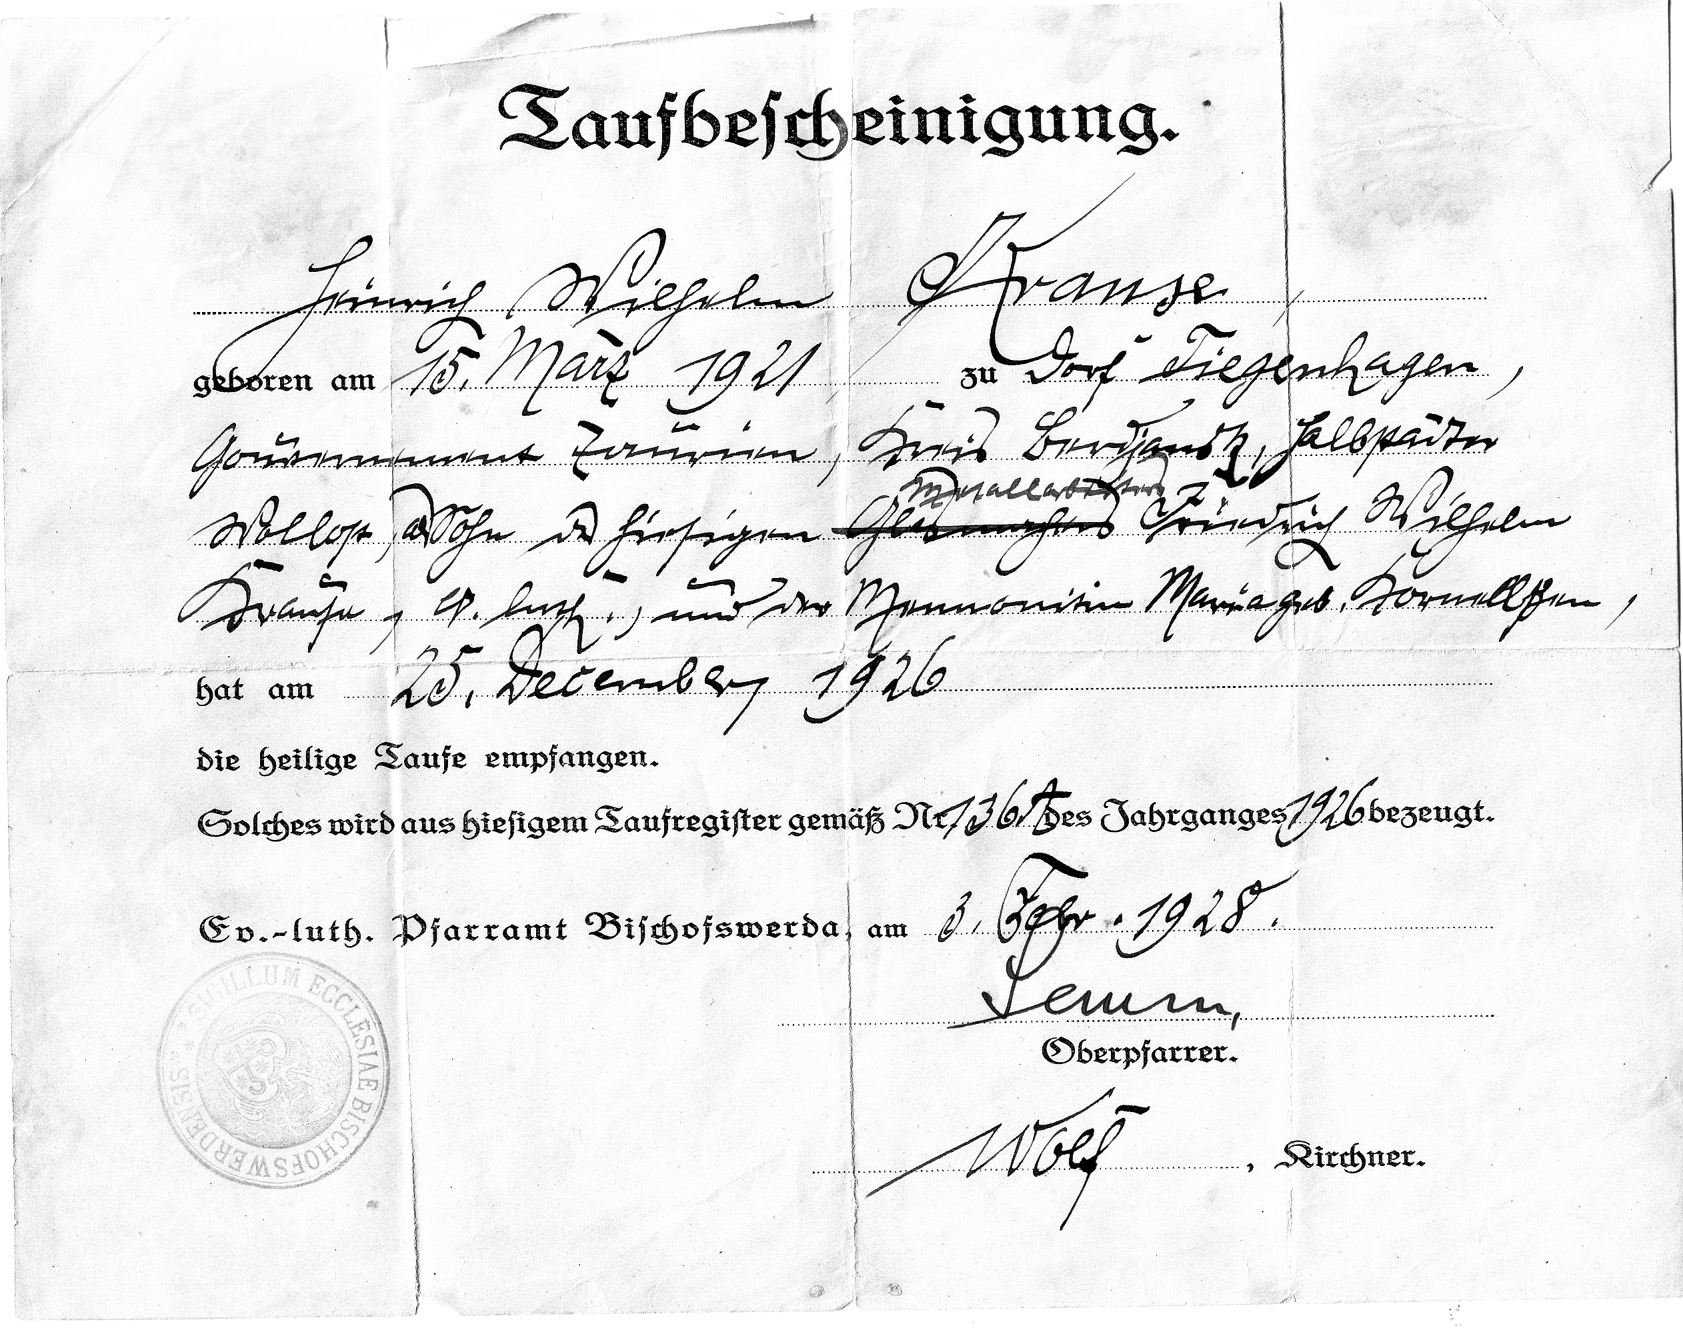 Taufbescheinigung.
Heinrich Wilhelm Krause,
geboren am 15. März 1921 zu Dorf Tiegenhagen,
Gouvernement Taurien, Kreis Berdjansk, Halbstädter
Wollost, Sohn des hiesigen Metallarbeiters Glasmachers Friedrich Wilhelm
Krause, ev. luth., und der Mennonitin Maria geb. Kornellßen,
hat am 25. December 1926
die heilige Taufe empfangen.
Solches wird aus hiesigem Taufregister gemäß Nr. 136 des Jahrganges 1926 bezeugt.
Ev.-luth. Pfarramt Bischofswerda, am 3. Febr. 1928.
Oberpfarrer.
Wolf, Kirchner.
SIGILLUM ECCLESIAE BISCHOFSWERDENSIS